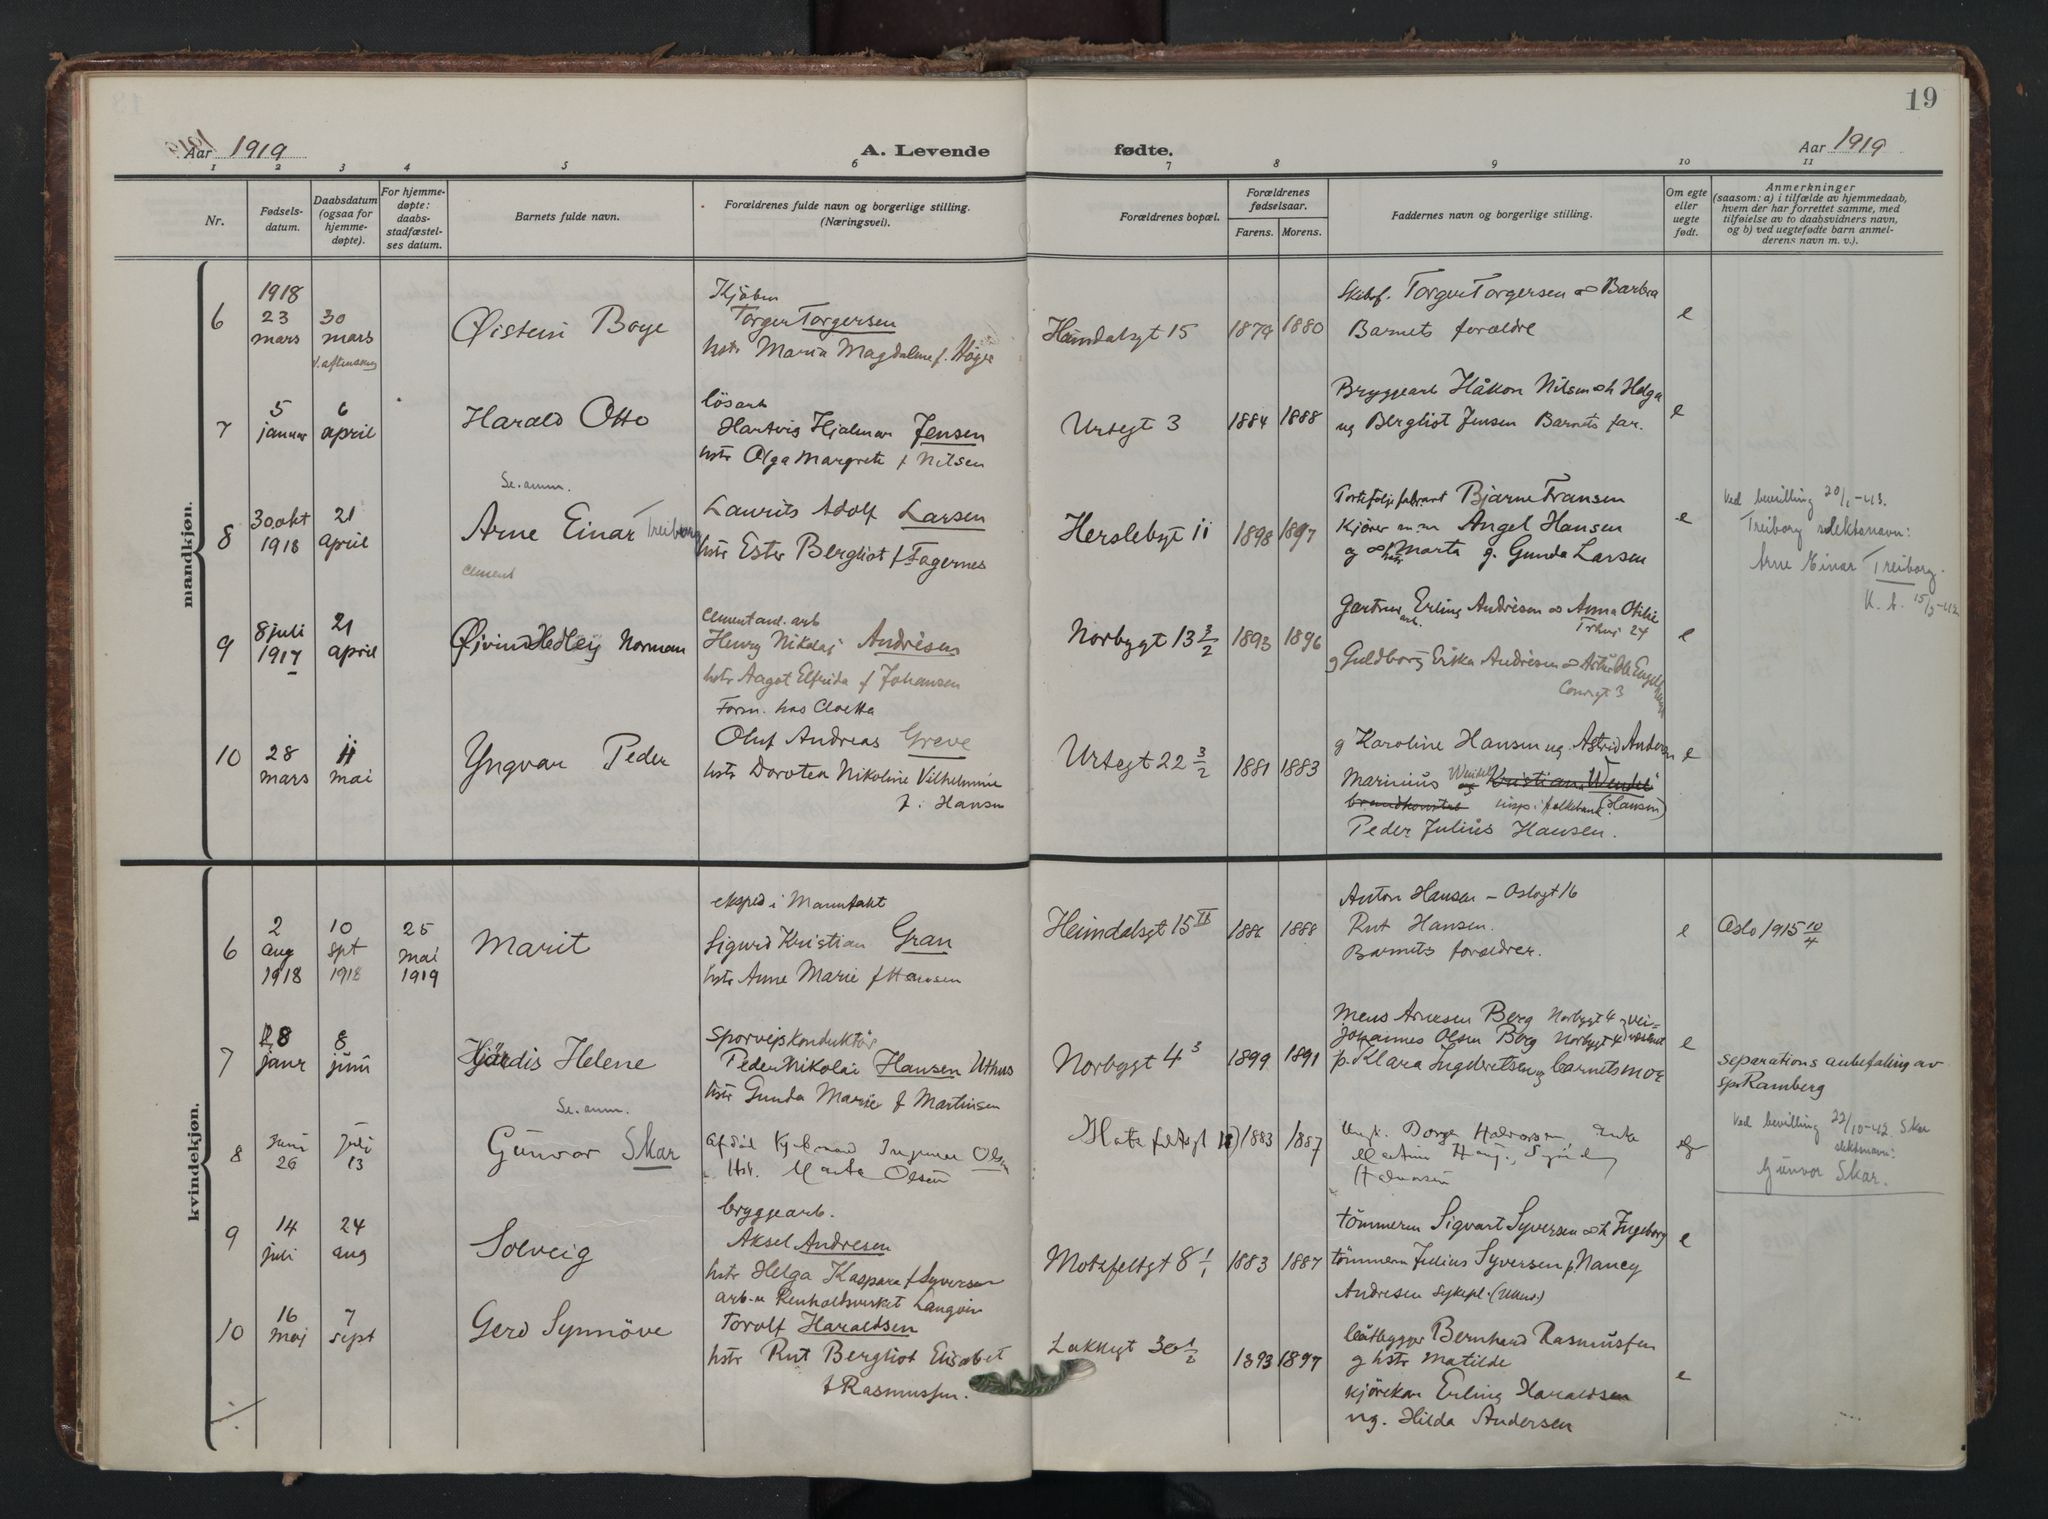 19
Aar 1919
A. Levende
fødte.
Aar 1919
1 2 3 4 5 6 7 8 9 10 11
Nr.
Fødsels-
datum.
Daabsdatum
(ogsaa for
hjemme-
døpte).
For hjemme-
døpte:
daabs-
stadfæstel-
ses datum.
Barnets fulde navn.
Forældrenes fulde navn og borgerlige stilling.
(Næringsvei).
Forældrenes bopæl.
Forældrenes
fødselsaar.
Farens. Morens.
Faddernes navn og borgerlige stilling.
Om egte
eller
uegte
født.
Anmerkninger
(saasom: a) i tilfælde av hjemmedaab,
hvem der har forrettet samme, med
tilføielse av to daabsvidners navn,
og b) ved uegtefødte barn anmel-
derens navn m. v.).
mandkjøn.
6
1918
23
mars
30
mars
Øistein Boye
Torger Torgersen
hstr Maria Magdalene f.
Heimdalsgt 15
1879 1880
Torger Torgersen Barbra
Barnets forældre
e
7
5
januar
6
april
Harald Otto
løsarb
Hartvig Hjalmar Jensen
hstr Olga Margrete f Nilsen
Urtegt 3
1884 1888
Bryggearb Håkon Nilsen h Helga
ug Bergliot Jensen Barnets far.
e
Se. anm.
8
30 okt
1918
21
april
Arne Einar Treiborg
Laurits Adolf Larsen
hstr Ester Bergliot f Fagernes
Herslebgt 11
1898 1897
Bjarne Fransen
Kjører Angel Hansen
Marta g. Gunda Larsen
e
Ved bevilling 20/1-43.
Treiborg slektsnavn:
Arne Einar Treiborg.
cement
9
8 juli
1917
21
april
Øivind Hedley Norman
Cementind. arb
Henry Nikolaj Andresen
hstr Aagot Elfrida f Johansen
Norbygt 13 3/2
1893 1896
Gartnerarb. Erling Andresen Anna Otilie
g Guldborg Erika Andresen
e
10
28
mars
11
mai
Yngvar Peder
Form. hos Cloetta
Oluf Andreas Greve
hstr Dorotea Nikoline Vilhelmine
f: Hansen
Urtegt 22 3/2
1881 1883
g Karoline Hansen ug. Astrid Andersen
Marinius Wendel Kristian Wendel
brandkonstabel (Hansen)
Peder Julius Hansen.
e
kvindekjøn.
6
2
aug
1918
10
spt
1918
25
mai
1919
Marit
eksped i Manufakt
Sigurd Kristian Gran
hstr Anne Marie f Hansen
Heimdalsgt 15 II
1886 1888
Anton Hansen – Oslogt 16
Rut Hansen.
Barnets forældrer.
e
Oslo 1915 10/4
7
8
janr
8
juni
Hjørdis Helene
Sporvejskonduktør
Peder Nikolai Hansen Uthus
hstr Gunda Marie f Martinsen
Norbygt 4 3
1899 1891
Mens Arnesen Berg Norbygt 4
Johannes Olsen Berg Norbygt 4
p. Klara Ingebretsen og barnets mor
e
separations anbefaling av
spr Ramberg
Se. anm.
8
Juni
26
Juli
13
Gunvor Skar
Ingvar Olsen
Marta Olsen
1883 1887
Halvorsen
Ved bevilling 22/10-42. Skar
slektsnavn:
Gunvor Skar.
9
14
juli
24
aug
Solveig
bryggearb.
Aksel Andresen
hstr Helga Kaspara f Syversen
Motzfeltgt 8 1/1
1883 1887
tömmerm Sigvart Syversen h Ingeborg
tömmerm Julius Syversen p. Nancy
Andresen Sykepl.
e
10
16
maj
7
sept
Gerd Synnöve
arb. Renholdsverket
Torolf Haraldsen
hstr Rut Bergliot Elisabet
f Rasmussen.
Lakkegt 30 1/2
1893 1897
båtbygger Bernhard Rasmussen
g hstr Matilde
kjörekar Erling Haraldsen
ug. Hilda Andersen
e